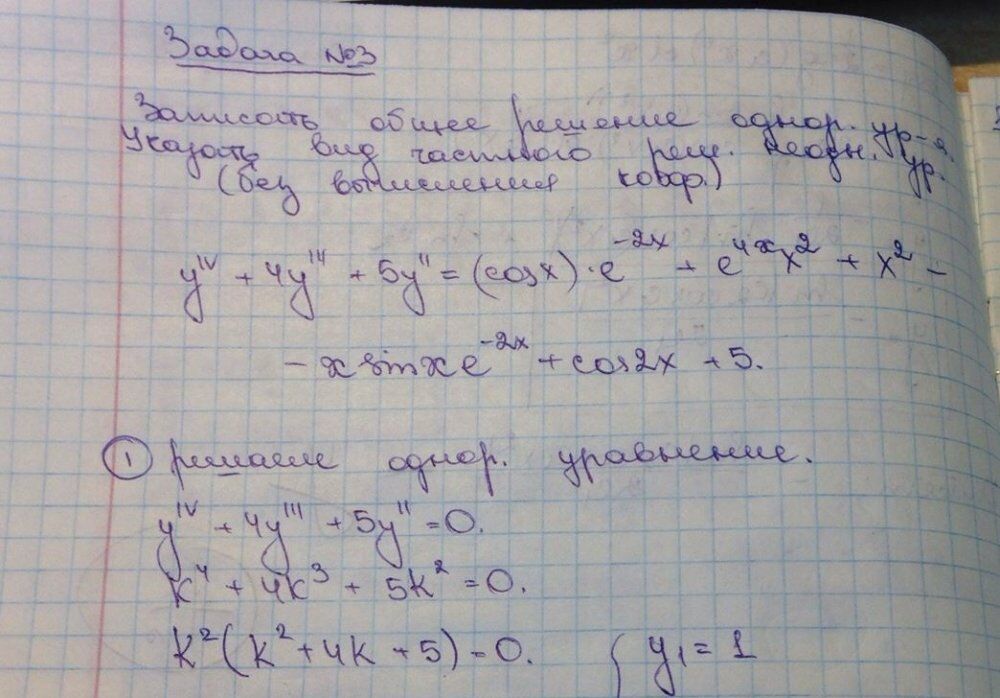 Задача №3
Записать общее решение однор. ур-я.
Указать вид частного реш. неодн. ур.
(без вычисления коэф.)
y^IV + 4y''' + 5y'' = (cos x) · e^{-2x} + e^{4x}x^2 + x^2 -
- x sin x e^{-2x} + cos 2x + 5.
① решаем однор. уравнение.
y^IV + 4y''' + 5y'' = 0.
k^4 + 4k^3 + 5k^2 = 0.
k^2(k^2 + 4k + 5) = 0. { y_1 = 1